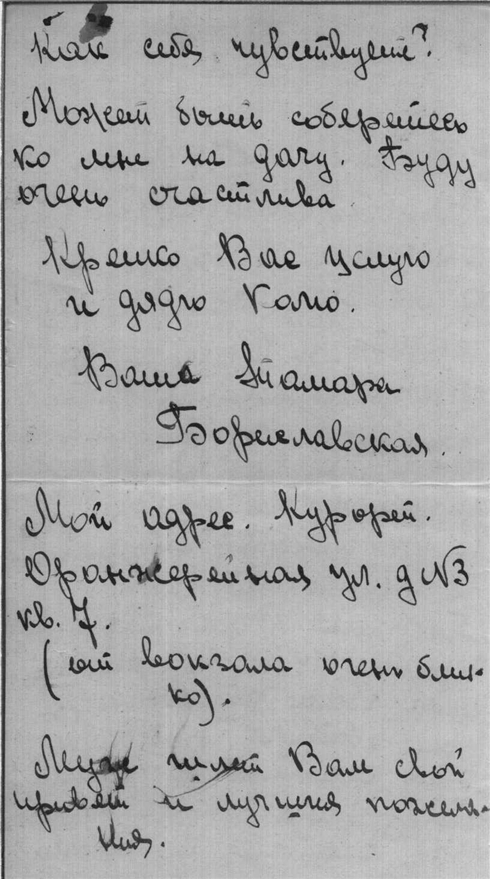 Как себя чувствуете?
Может быть соберетесь
ко мне на дачу. Буду
очень счастлива
Крепко Вас целую
и дядю Колю.
Ваша Тамара
Бориславская.
Мой адрес. Курорт.
Оранжерейная ул. д №3
кв. 7.
(от вокзала очень близ-
ко).
шлет Вам свой
привет и лучшия пожела-
ния.